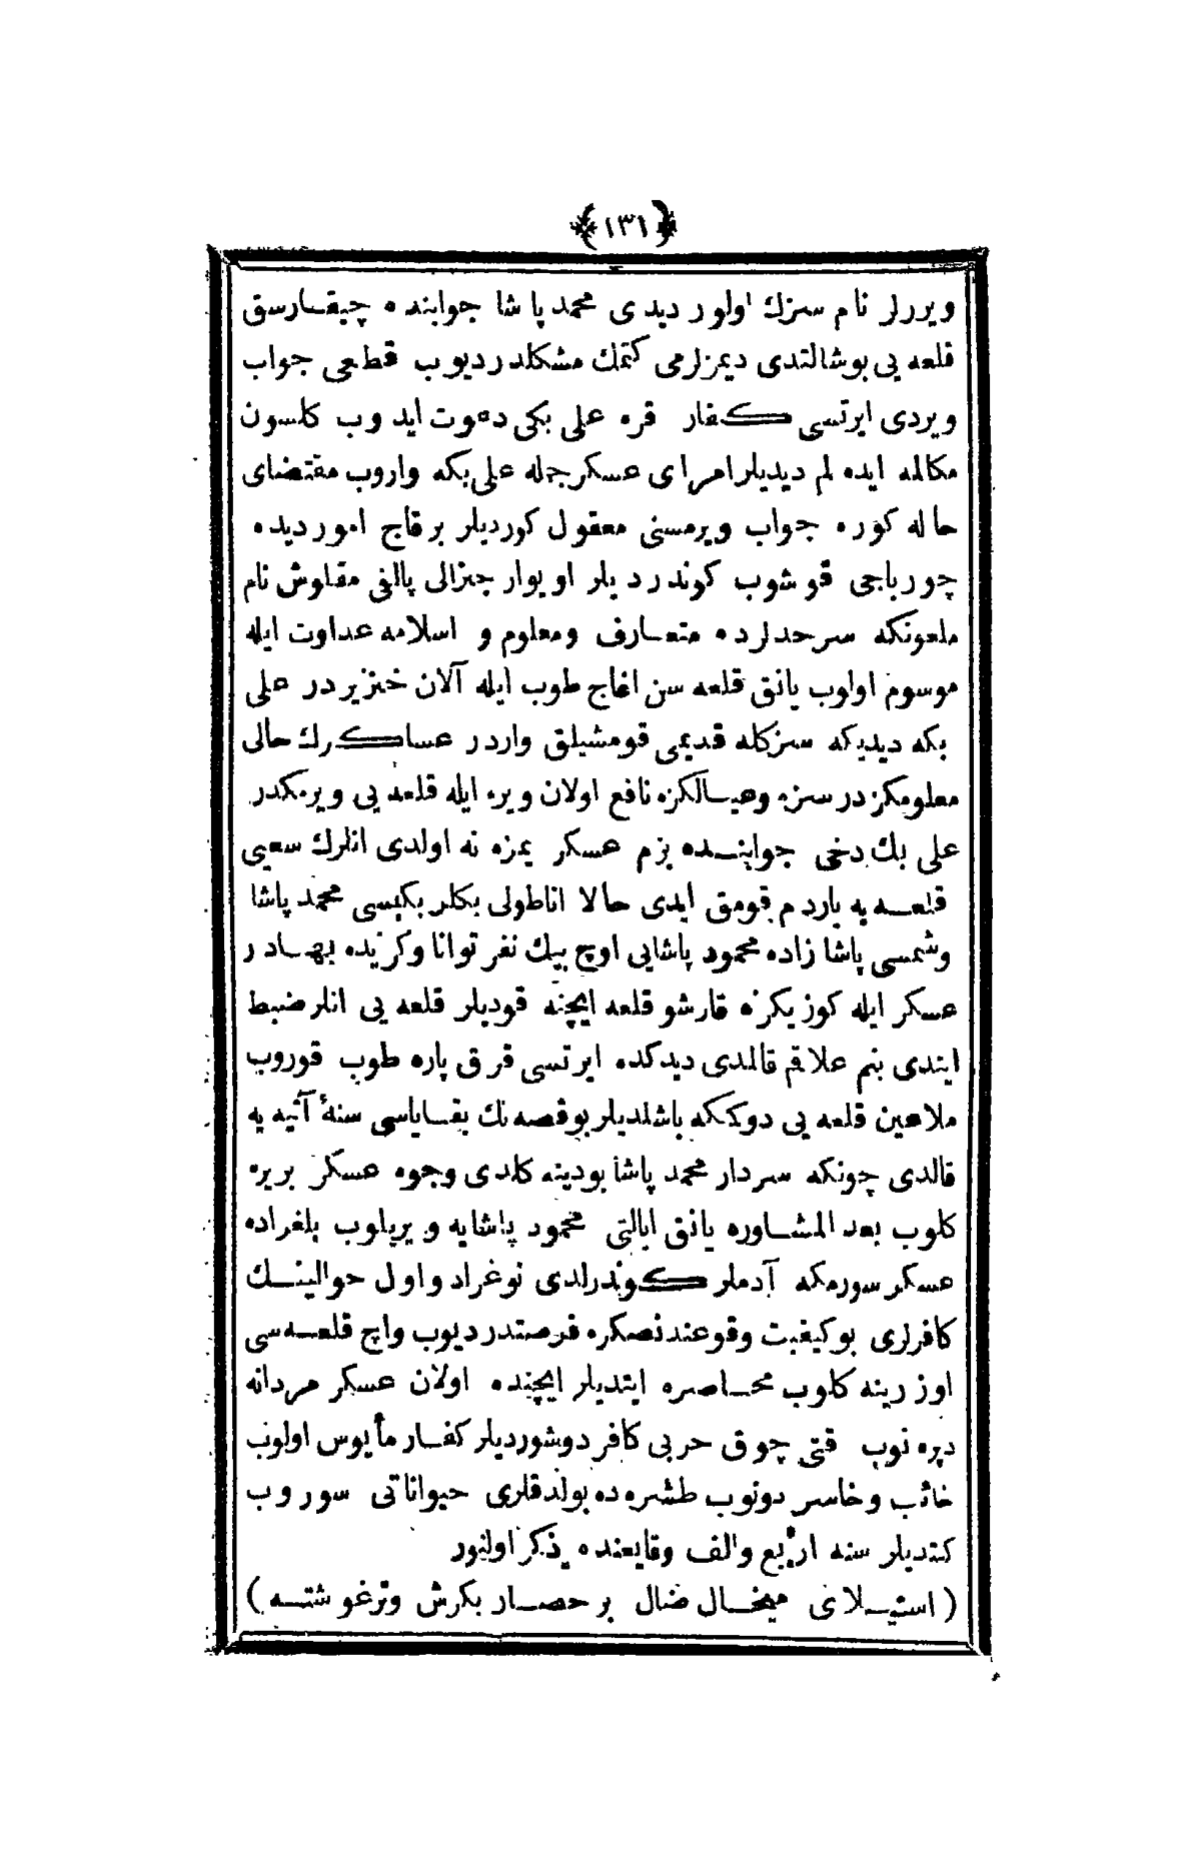 ﴿١٣١﴾
ويررلر نام سزك اولور ديدى محمد پاشا جوابنده چيقارسق
قلعه يى بوشالتدى ديمزلرمى كتمك مشكلدر ديوب قطعى جواب
ويردى ايرتسى كفار قره على بكى دعوت ايدوب كلسون
مكالمه ايده لم ديديلر امراى عسكر جمله على بكه واروب مقتضاى
حاله كوره جواب ويرمسنى معقول كورديلر بر قاج امور ديده
چورباجى قوشوب كوندرديلر اويوار جنرالى پالفى مقلوش نام
ملعونكه سرحدلرده متعارف ومعلوم و اسلامه عداوت ايله
موسوم اولوب يانق قلعه سن اغاج طوب ايله آلان خنزيردر على
بكه ديديكه سزكله قديمى قومشيلق واردر عساكرك حالى
معلومكزدر سزه وعيالكزه نافع اولان ويره ايله قلعه يى ويرمكدر
على بك دخى جوابنده بزم عسكر يمزه نه اولدى انلرك سعيى
قلعه يه ياردم قومق ايدى حالا اناطولى بكلر بكيسى محمد پاشا
وشمسى پاشا زاده محمود پاشايى اوچ بيك نفر توانا وكزيده بهادر
عسكر ايله كوزيكزه قارشو قلعه ايچنه قوديلر قلعه يى انلر ضبط
ايتدى بنم علاقم قالمدى ديدكده ايرتسى قرق پاره طوب قوروب
ملاعين قلعه يى دوكمكه باشلديلر بوقصه نك بقاياسى سنهٔ آتيه يه
قالدى چونكه سردار محمد پاشا بودينه كلدى وجوه عسكر بريره
كلوب بعد المشاوره يانق ايالتى محمود پاشايه ويريلوب بلغراده
عسكر سورمكه آدملر كوندرلدى نوغراد واول حوالينك
كافرلرى بوكيفيت وقوعندنصكره فرصتدر ديوب واچ قلعه سى
اوزرينه كلوب محاصره ايتديلر ايچنده اولان عسكر مردانه
ديره نوب قتى چوق حربى كافر دوشورديلر كفار مأيوس اولوب
خائب وخاسر دونوب طشره ده بولدقلرى حيواناتى سوروب
كتديلر سنه اربع والف وقايعنده ذكر اولنور
(استيلاى ميخال ضال بر حصار بكرش وترغوشته)